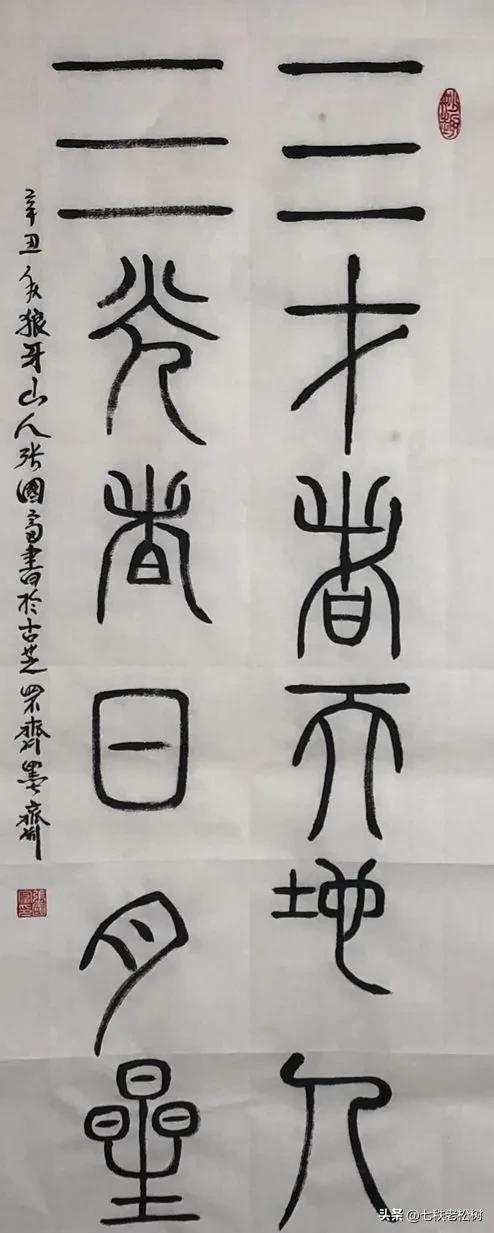 三才者天地人
三光者日月星
辛丑秋狼牙山人张国富书于古芝罘斋墨斋
头条 @七秩老松树